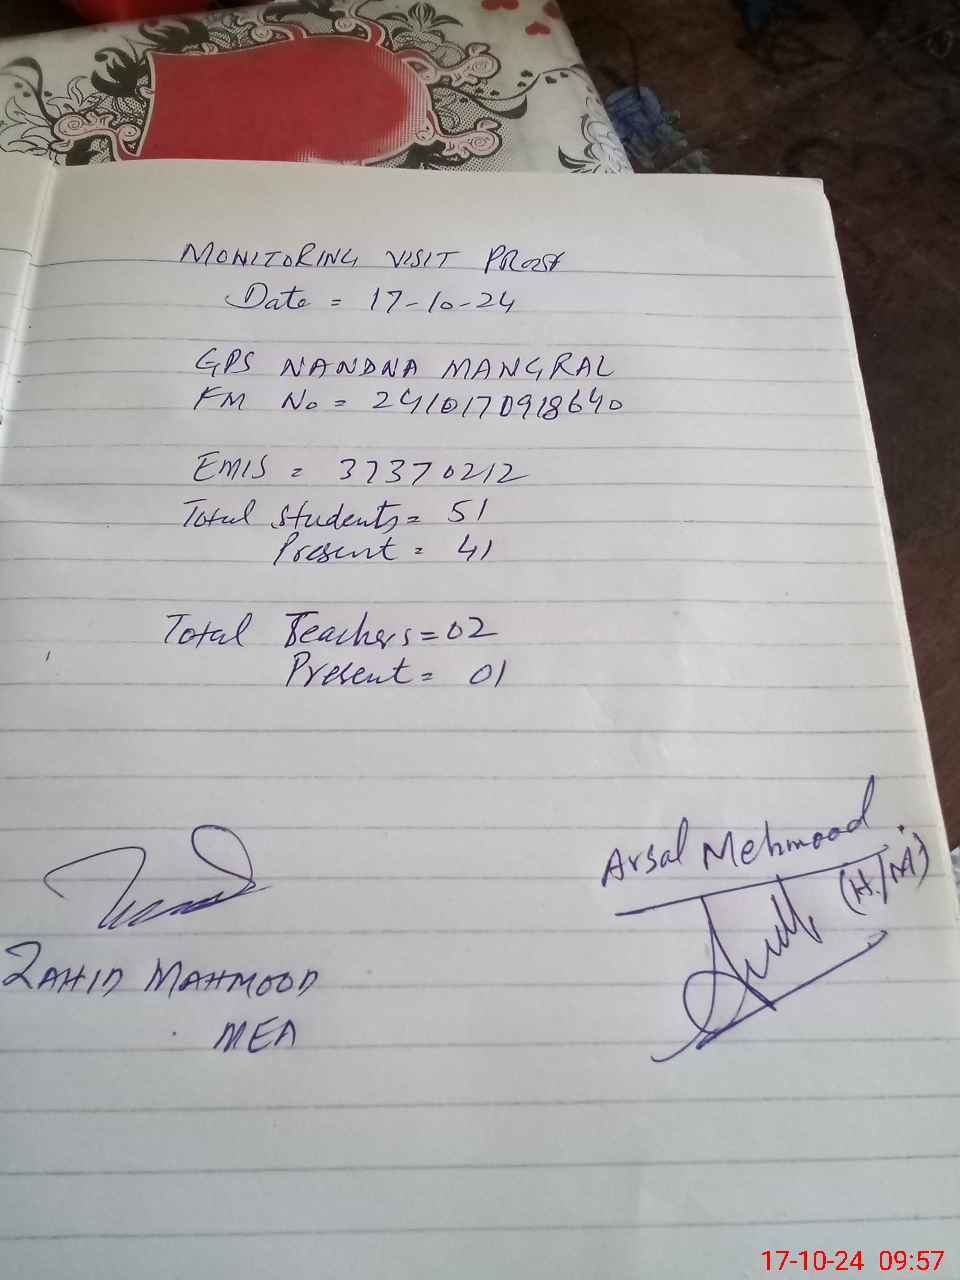 MONITORING VISIT PROOF
Date = 17-10-24
GPS NANDNA MANGRAL
FM No = 2410170918640
EMIS = 37370212
Total Students = 51
Present = 41
Total Teachers = 02
Present = 01
Arsal Mehmood
(H/M)
ZAHID MAHMOOD
MEA
17-10-24 09:57